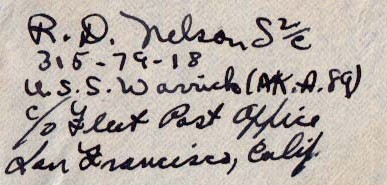 R. D. Nelson S 2/c
315-79-18
U.S.S. Warrick (A.K.A. 89)
c/o Fleet Post Office
San Francisco, Calif.